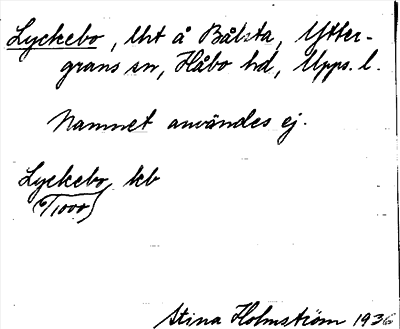 Lyckebo, lht å Bålsta, Ytter-
grans sn, Håbo hd, Upps. l.
Namnet användes ej.
Lyckebo kb
1/1000
Stina Holmström 1936